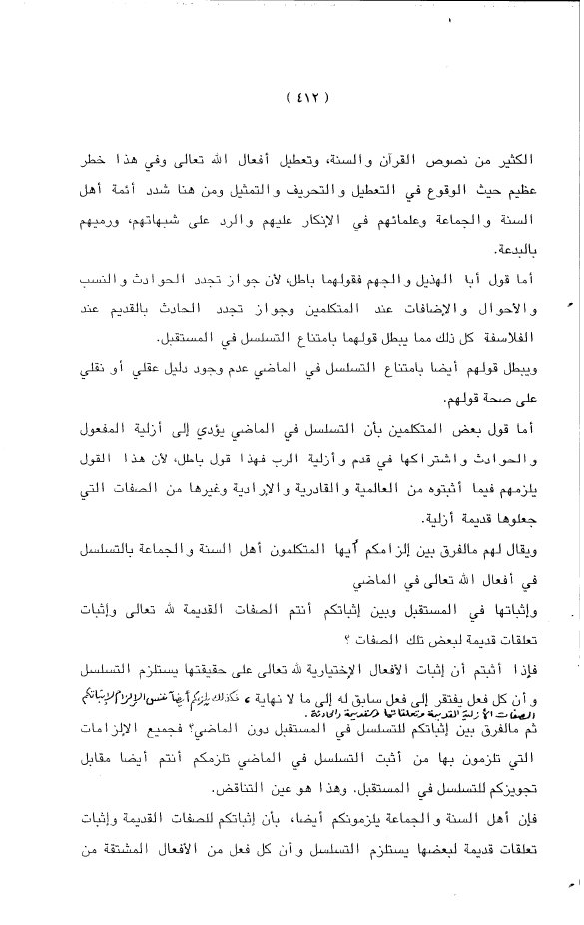 ( ٤١٢ )
الكثير من نصوص القرآن والسنة، وتعطيل أفعال الله تعالى وفي هذا خطر
عظيم حيث الوقوع في التعطيل والتحريف والتمثيل ومن هنا شدد أئمة أهل
السنة والجماعة وعلمائهم في الإنكار عليهم والرد على شبهاتهم، ورميهم
بالبدعة.
أما قول أبا الهذيل والجهم فقولهما باطل، لأن جواز تجدد الحوادث والنسب
والأحوال والإضافات عند المتكلمين وجواز تجدد الحادث بالقديم عند
الفلاسفة كل ذلك مما يبطل قولهما بامتناع التسلسل في المستقبل.
ويبطل قولهم أيضا بامتناع التسلسل في الماضي عدم وجود دليل عقلي أو نقلي
على صحة قولهم.
أما قول بعض المتكلمين بأن التسلسل في الماضي يؤدي إلى أزلية المفعول
والحوادث واشتراكها في قدم وأزلية الرب فهذا قول باطل، لأن هذا القول
يلزمهم فيما أثبتوه من العالمية والقادرية والإرادية وغيرها من الصفات التي
جعلوها قديمة أزلية.
ويقال لهم مالفرق بين إلزامكم أيها المتكلمون أهل السنة والجماعة بالتسلسل
في أفعال الله تعالى في الماضي
وإثباتها في المستقبل وبين إثباتكم أنتم الصفات القديمة لله تعالى وإثبات
تعلقات قديمة لبعض تلك الصفات ؟
فإذا أثبتم أن إثبات الأفعال الإختيارية لله تعالى على حقيقتها يستلزم التسلسل
وأن كل فعل يفتقر إلى فعل سابق له إلى ما لا نهاية ، فكذلك يلزمكم أيضاً نفس الإلزام لإثباتكم
الصفات الأزلية القديمة وتعلقاتها القديمة والحادثة.
ثم مالفرق بين إثباتكم للتسلسل في المستقبل دون الماضي؟ فجميع الإلزامات
التي تلزمون بها من أثبت التسلسل في الماضي تلزمكم أنتم أيضا مقابل
تجويزكم للتسلسل في المستقبل. وهذا هو عين التناقض.
فإن أهل السنة والجماعة يلزمونكم أيضا، بأن إثباتكم للصفات القديمة وإثبات
تعلقات قديمة لبعضها يستلزم التسلسل وأن كل فعل من الأفعال المشتقة من